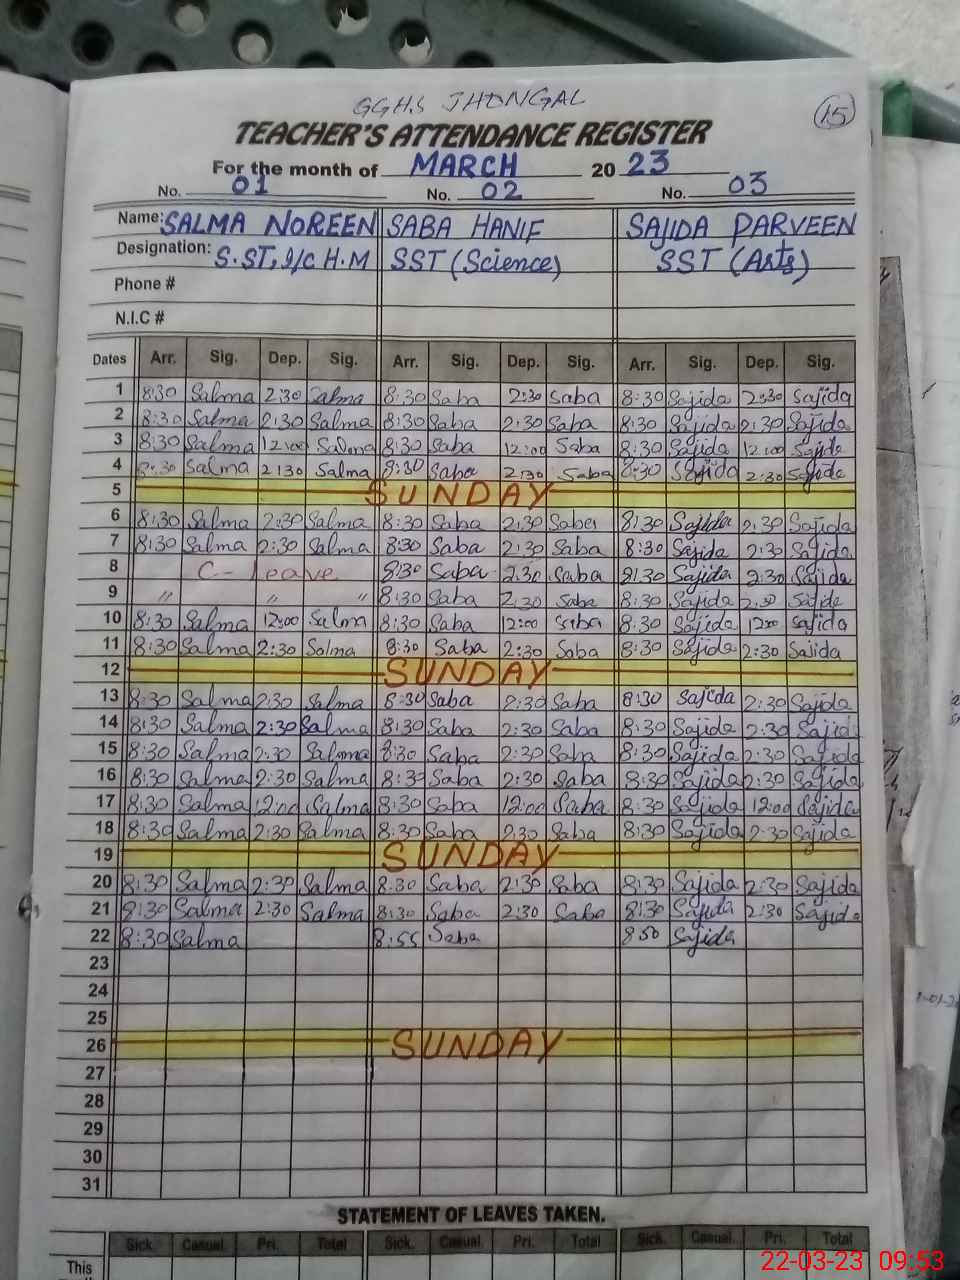 GGHS JHONGAL
15
TEACHER'S ATTENDANCE REGISTER
For the month of MARCH 2023
No. 01 No. 02 No. 03
Name: SALMA NOREEN SABA HANIF SAJIDA PARVEEN
Designation: S.ST, I/C H.M SST (Science) SST (Arts)
Phone #
N.I.C #
Dates Arr. Sig. Dep. Sig. Arr. Sig. Dep. Sig. Arr. Sig. Dep. Sig.
1 8:30 Salma 2:30 Salma 8:30 Saba 2:30 Saba 8:30 Sajida 2:30 Sajida
2 8:30 Salma 2:30 Salma 8:30 Saba 2:30 Saba 8:30 Sajida 2:30 Sajida
3 8:30 Salma 12:00 Salma 8:30 Saba 12:00 Saba 8:30 Sajida 12:00 Sajida
4 8:30 Salma 2:30 Salma 8:30 Saba 2:30 Saba 8:30 Sajida 2:30 Sajida
5 SUNDAY
6 8:30 Salma 2:30 Salma 8:30 Saba 2:30 Saba 8:30 Sajida 2:30 Sajida
7 8:30 Salma 2:30 Salma 8:30 Saba 2:30 Saba 8:30 Sajida 2:30 Sajida
8 C- Leave 8:30 Saba 2:30 Saba 8:30 Sajida 2:30 Sajida
9 " " " 8:30 Saba 2:30 Saba 8:30 Sajida 2:30 Sajida
10 8:30 Salma 12:00 Salma 8:30 Saba 12:00 Saba 8:30 Sajida 12:00 Sajida
11 8:30 Salma 2:30 Salma 8:30 Saba 2:30 Saba 8:30 Sajida 2:30 Sajida
12 SUNDAY
13 8:30 Salma 2:30 Salma 8:30 Saba 2:30 Saba 8:30 Sajida 2:30 Sajida
14 8:30 Salma 2:30 Salma 8:30 Saba 2:30 Saba 8:30 Sajida 2:30 Sajida
15 8:30 Salma 2:30 Salma 8:30 Saba 2:30 Saba 8:30 Sajida 2:30 Sajida
16 8:30 Salma 2:30 Salma 8:30 Saba 2:30 Saba 8:30 Sajida 2:30 Sajida
17 8:30 Salma 12:00 Salma 8:30 Saba 12:00 Saba 8:30 Sajida 12:00 Sajida
18 8:30 Salma 2:30 Salma 8:30 Saba 2:30 Saba 8:30 Sajida 2:30 Sajida
19 SUNDAY
20 8:30 Salma 2:30 Salma 8:30 Saba 2:30 Saba 8:30 Sajida 2:30 Sajida
21 8:30 Salma 2:30 Salma 8:30 Saba 2:30 Saba 8:30 Sajida 2:30 Sajida
22 8:30 Salma 8:55 Saba 8 50 Sajida
23
24
25
26 SUNDAY
27
28
29
30
31
STATEMENT OF LEAVES TAKEN.
Sick. Casual. Pri. Total Sick. Casual. Pri. Total Sick. Casual. Pri. Total
This
22-03-23 09:53